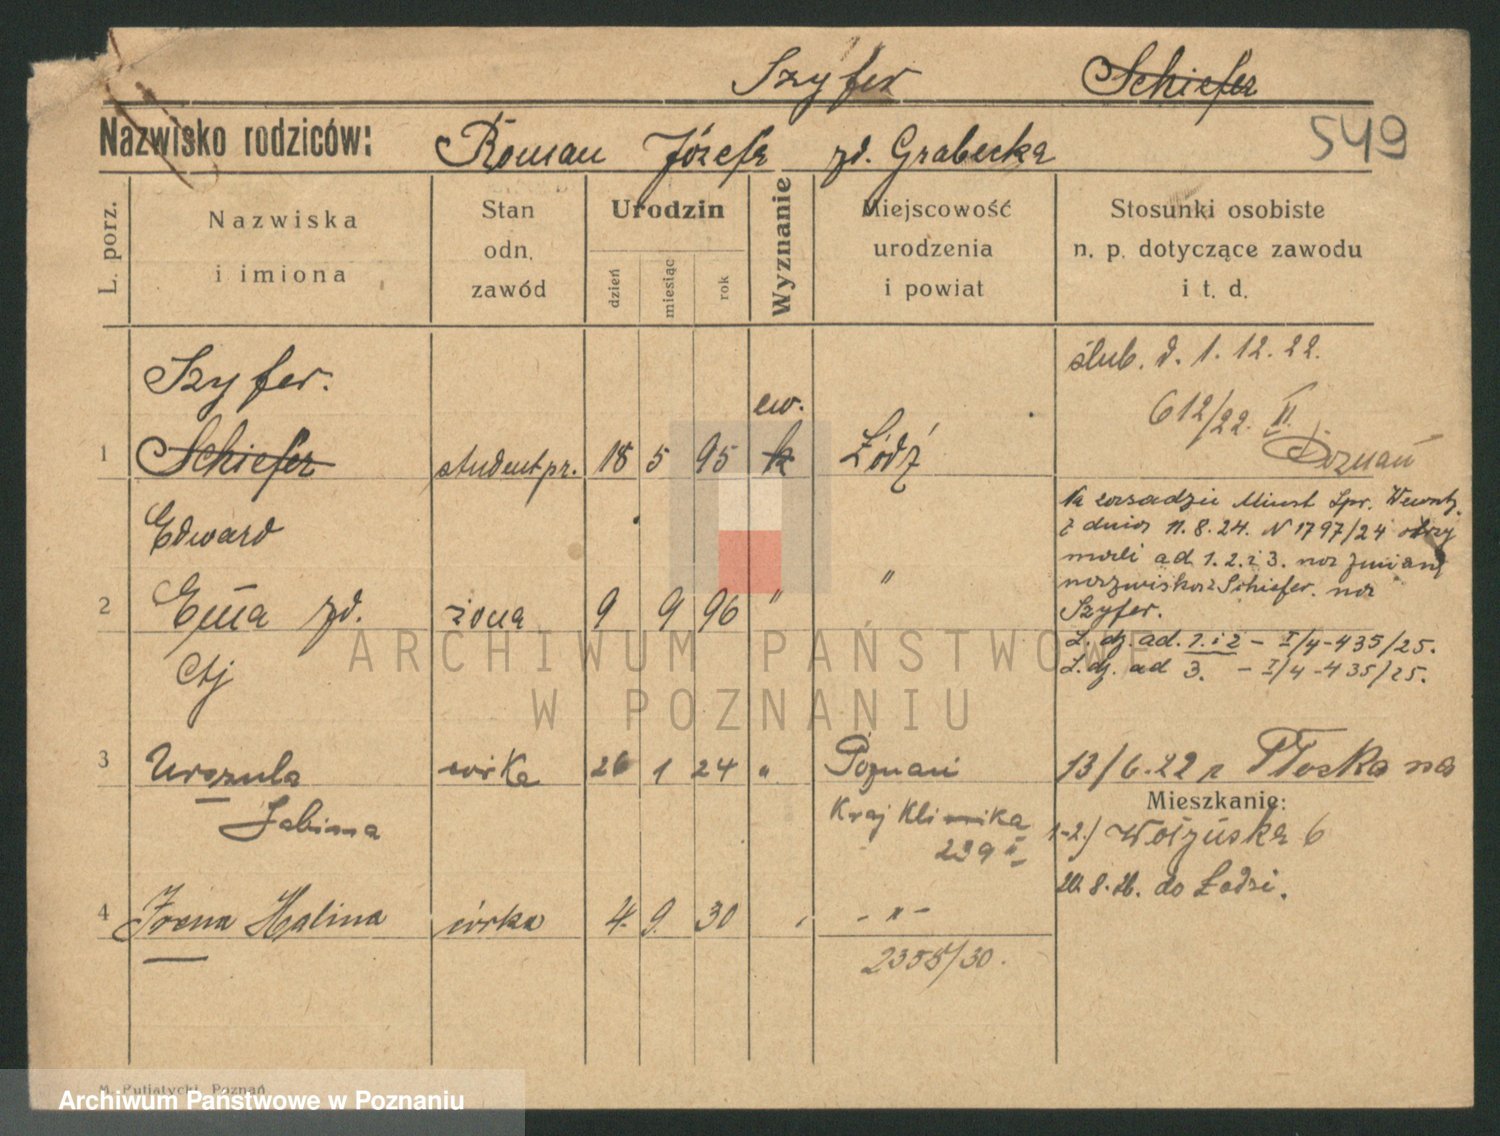 Szyfer Schiefer
Nazwisko rodziców: Roman Józefa zd. Grabecka
549
L. porz.
Nazwiska
i imiona
Stan
odn.
zawód
Urodzin
dzień
miesiąc
rok
Wyznanie
Miejscowość
urodzenia
i powiat
Stosunki osobiste
n. p. dotyczące zawodu
i t. d.
Szyfer.
ew.
1 Schiefer student pr. 18 5 95 k Łódź
Edward
ślub. d. 1. 12. 22.
612/22. II.
Poznań
2 Ema zd. żona 9 9 96 " "
Na zasadzie Minst Spr. Wewntz.
z dnia 11.8.24. N 1797/24 otrzy
mali ad 1.2. i 3. na zmianę
nazwiska Schiefer. na
Szyfer.
L. dz. ad. 1. i 2 - I/4-435/25.
L. dz. ad 3. - I/4-435/25.
3 Urszula córka 26 1 24 " Poznań
Kraj Klinika
239 II
13/6.22 z Płocka na
Mieszkanie:
1-2.) 6
20.8.26. do Łodzi.
4 Irena Halina córka 4. 9. 30 - " -
2355/30.
M. Putiatycki, Poznań
ARCHIWUM PAŃSTWOWE
W POZNANIU
Archiwum Państwowe w Poznaniu